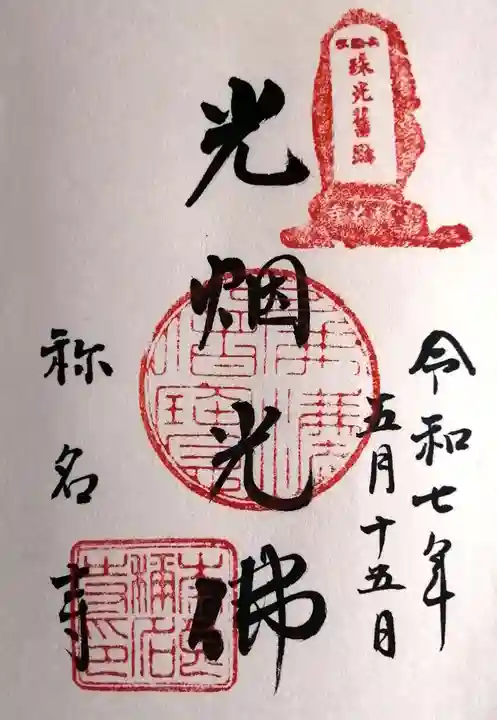 珠光舊跡
令和七年
五月十五日
光烟光佛
称名寺